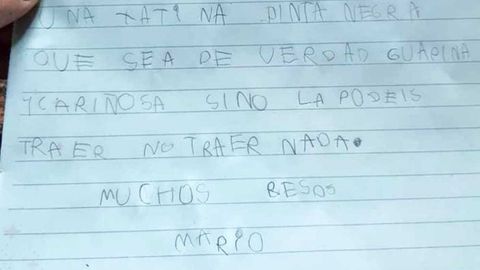 UNA XATIÑA PINTA NEGRA
QUE SEA DE VERDAD GUAPINA
Y CARIÑOSA SINO LA PODEIS
TRAER NO TRAER NADA.
MUCHOS BESOS
MARIO